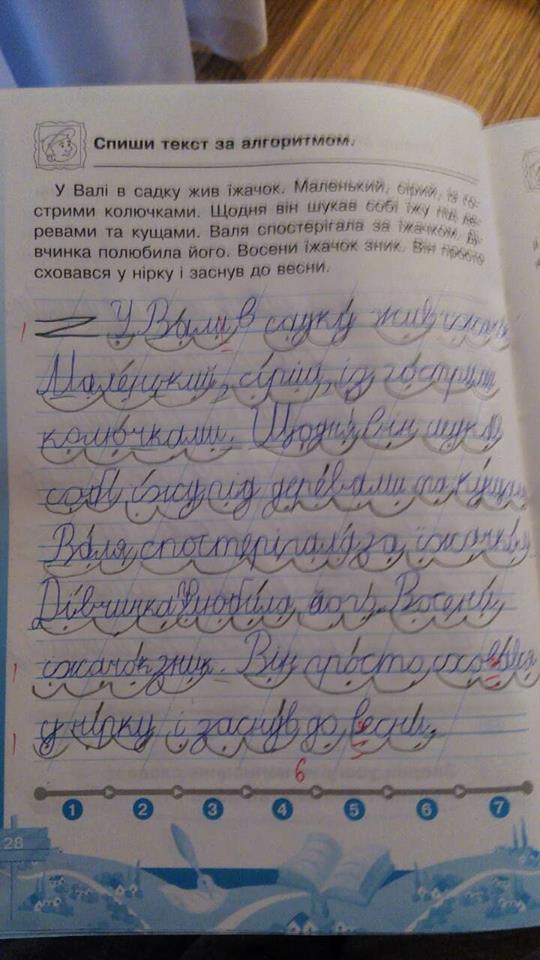 Спиши текст за алгоритмом.
У Валі в садку жив їжачок. Маленький, сірий, із го-
стрими колючками. Щодня він шукав собі їжу під де-
ревами та кущами. Валя спостерігала за їжачком. Ді-
вчинка полюбила його. Восени їжачок зник. Він просто
сховався у нірку і заснув до весни.
1 У Валі в садку жив їжачок
Маленький, сірий, із гострими
колючками. Щодня він шукав
собі їжу під деревами та кущами
Валя спостерігала за їжачком
Дівчинка любила його. Восени
1 їжачок зник. Він просто сховався
1 у нірку і заснув до весни.
6
1 2 3 4 5 6 7
28